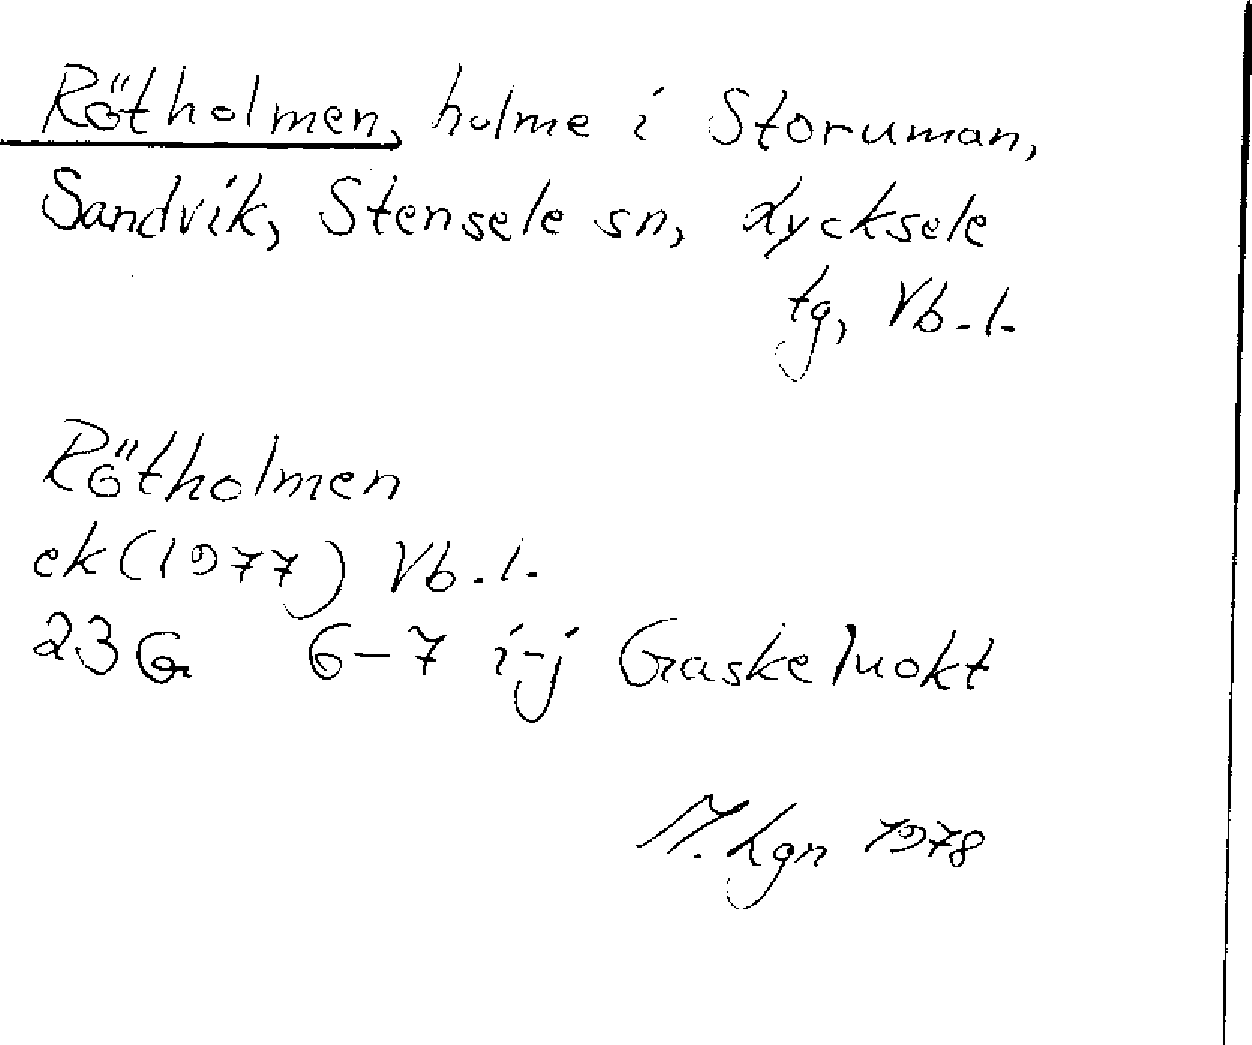 Rötholmen, holme i Storuman,
Sandvik, Stensele sn, Lycksele
tg, Vb. l.
Rötholmen
ek (1977) Vb. l.
23 G 6-7 i-j Gaskeluokt
M. Lgn 1978